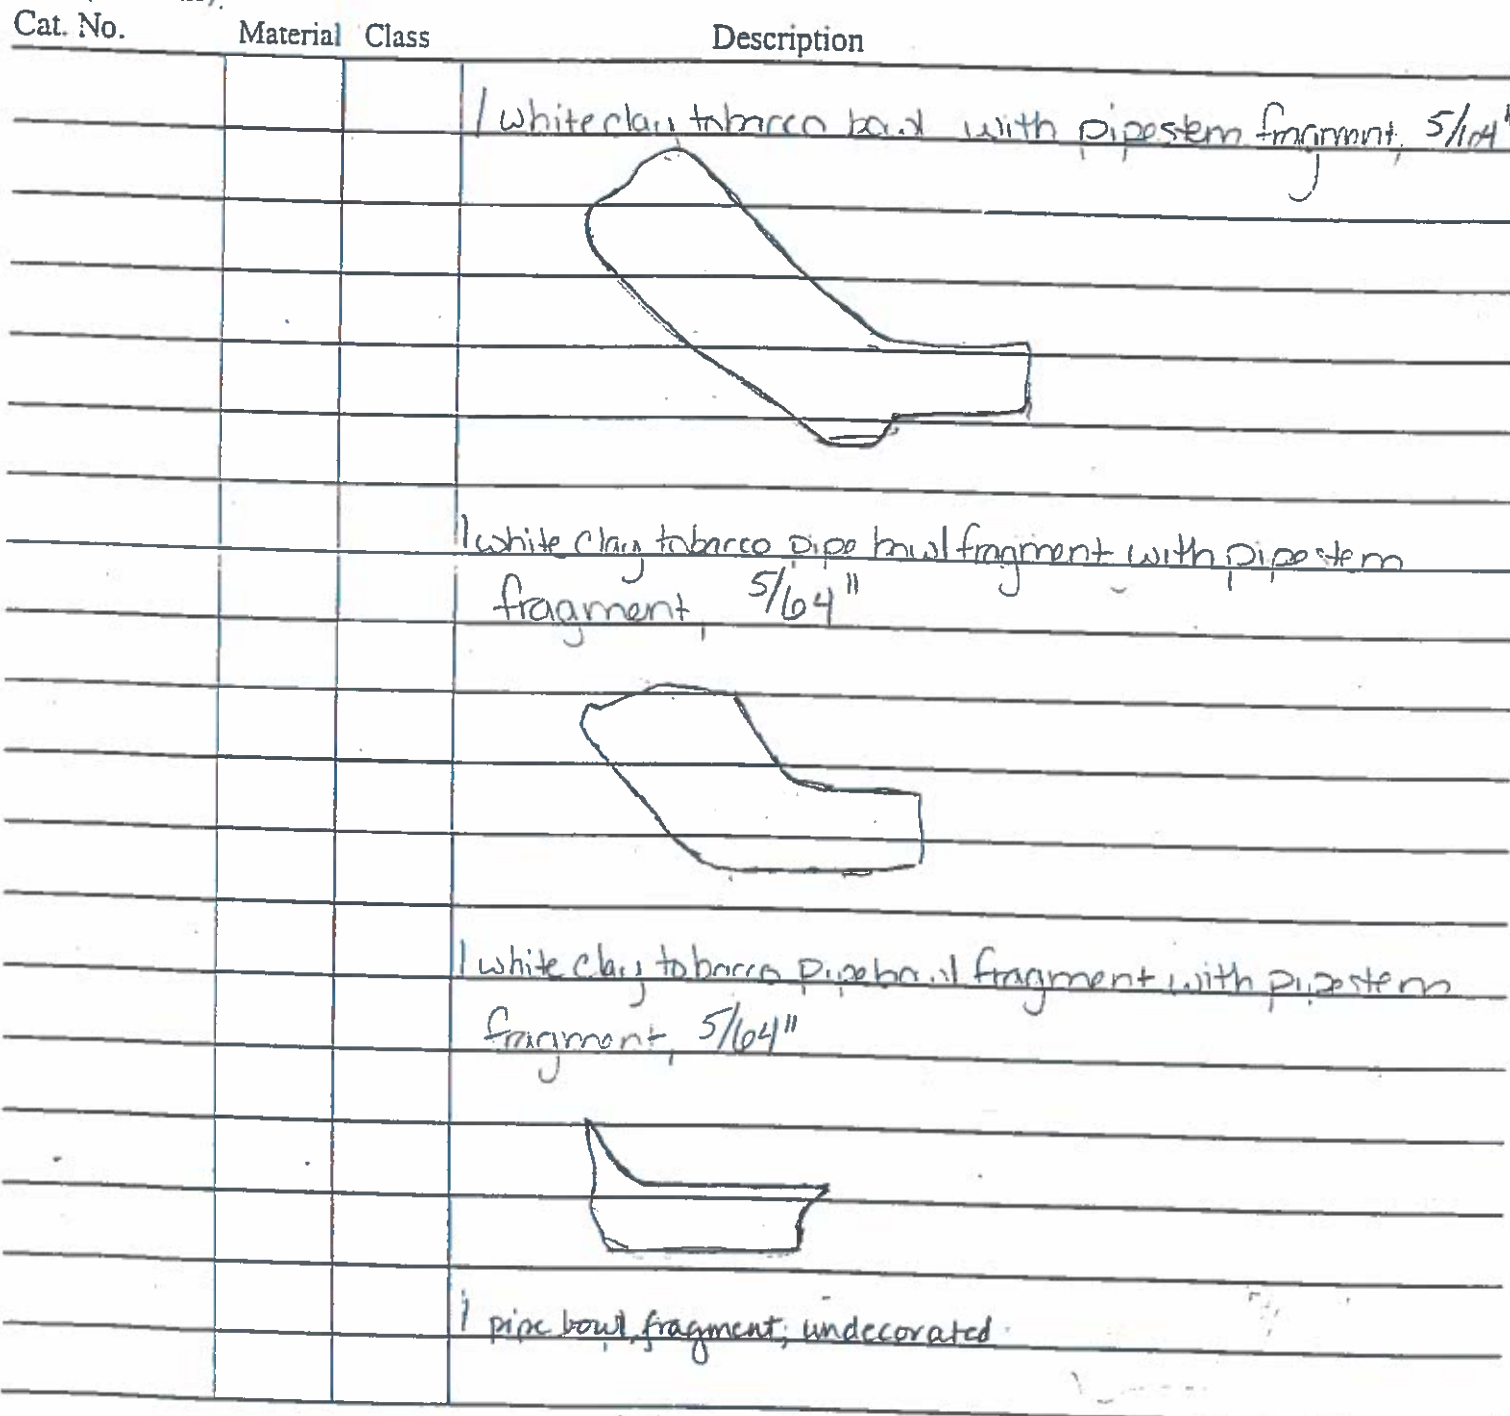 Cat. No. Material Class Description
1 white clay tobacco bowl with pipestem fragment, 5/64"
1 white clay tobacco pipe bowl fragment with pipestem
fragment, 5/64"
1 white clay tobacco pipe bowl fragment with pipestem
fragment, 5/64"
1 pipe bowl fragment; undecorated